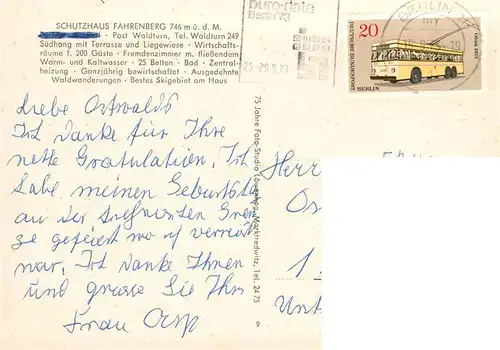 SCHUTZHAUS FAHRENBERG 746 m ü. d. M.
Post Waldturn, Tel. Waldturn 249
Südhang mit Terrasse und Liegewiese - Wirtschafts-
räume f. 200 Gäste - Fremdenzimmer m. fließendem
Warm- und Kaltwasser - 25 Betten - Bad - Zentral-
heizung - Ganzjährig bewirtschaftet - Ausgedehnte
Waldwanderungen - Bestes Skigebiet am Haus
Liebe Ostwalds
Ich danke für Ihre
nette Gratulation, Ich
habe meinen Geburtstag
an der
ge gefeiert wo ich verreist
war, Ich danke Ihnen
und grüsse Sie Ihre
Frau
75 Jahre Foto-Studio Marktredwitz, Tel. 24 75
9
euro-data
Berlin '73
25.-29.9.73
20
DEUTSCHE BUNDESPOST
BERLIN
BERLIN
Herr
Unt